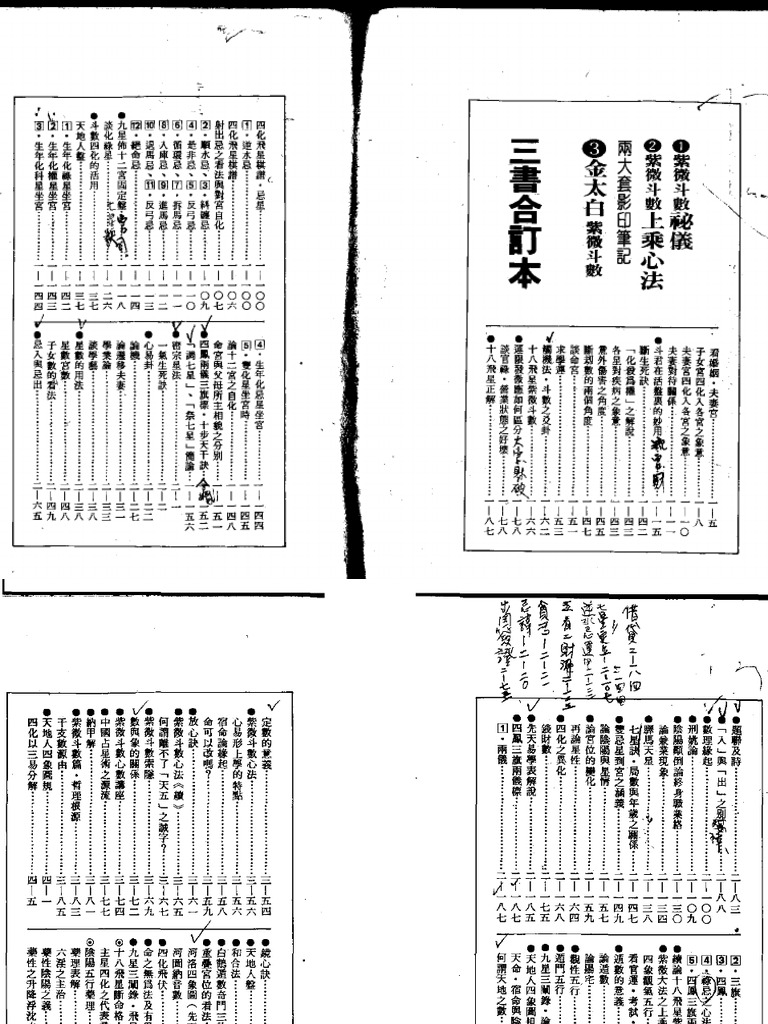 ❶紫微斗數祕儀
❷紫微斗數上乘心法
兩大套影印筆記
❸金太白紫微斗數
三書合訂本
看婚姻．夫妻宮……一—五
子女宮四化入各宮之象意……一—八
夫妻宮四化入各宮之象意……一—一〇
夫妻對待關係
●斗君在活盤裏的妙用……一—一五
斷生死訣……一—四二
「化殺爲權」之解說……一—四三
各星對疾病之象意……一—四三
意外傷害之角度……一—四四
斷划數的兩個角度……一—四五
談命宮……一—五一
求學運……一—五三
●樞機法．斗數之爻卦……一—六二
十八飛星紫微斗數……一—六六
●運限發微應如何區分……一—七八
談官祿．營業狀態之好壞……一—七八
●十八飛星正解……一—八七
四化飛星棋譜．忌星……一—一〇〇
①．逆水忌
四化飛星棋譜……一—一〇六
射出忌之看法與對宮自化
②．順水忌、③．糾纏忌……一—一〇九
④．是非忌、⑤．反弓忌……一—一一〇
⑥．循環忌、⑦．拆馬忌……一—一一一
⑧．入庫忌、⑨．進馬忌
⑩．退馬忌、⑪．反弓忌……一—一一三
⑫．絕命忌……一—一一四
●九星佈十二宮固定盤……一—一一八
談化祿星……一—一二六
●斗數四化的活用……一—一三七
天地人盤……一—一三七
①．生年化祿星坐宮……一—一四二
②．生年化權星坐宮……一—一四三
③．生年化科星坐宮……一—一四四
④．生年化忌星坐宮……一—一四四
⑤．雙化星坐宮時……一—一四五
論十二宮之自化……一—一四八
命宮與父母所主相貌之分別……一—一五一
●四鳳兩儀三旗標．十步天干訣……一—一五二
「調七星」、「祭七星」簡論……一—一五六
●密宗星法……二—一
一氣生死訣……二—二
心易卦……二—二二
論機……二—二七
論遷移夫妻……二—三一
學業論……二—三三
談學藝……二—三八
●星數的用法……二—三八
星數宮數……二—四八
子女數的看法……二—四九
●忌入與忌出……二—六五
借貸二—八四
●題聯及詩……二—八三
●「入」與「出」之別……二—八八
●數理緣起……二—一〇〇
刑姚論……二—一〇九
●陰陽顛倒論終身職業格……二—一三〇
論兼業現象……二—一三四
●驛馬天星……二—一三八
七星訣．局數與年歲之關係……二—一四七
●雙忌星到宮之涵義……二—一四九
論陰陽與星情……二—一五五
●論宮位的變化……二—一五七
再論星性……二—一六四
●四化之異化……二—一六八
錢財數……二—一七五
●先天易學表解說……二—一八七
●四鳳三旗兩儀標……二—一八七
①．兩儀……二—一八七
②．三旗
③．四鳳
④．祿忌之心法
⑤．四鳳三旗兩
續論十八飛星紫
●紫微大法之上乘
四象觀氣五行
看官運．考試
●遁數的意義
論遁數
論陽宅
●觀性五行
●遁門五行
●九星三闢錄．論
天命．宿命與陰
●天地人四象圖相
何謂天地之數
●定數的意義……三—五四
●紫微斗數心法……三—五六
心易形上學的特點……三—五六
宿命論緣起
命可以改嗎？……三—五九
●放心訣……三—六一
●紫微斗數心法《續》……三—六五
何謂離不了「天五」之誠字？……三—六七
●紫微斗數索隱……三—六九
●數與象的關係……三—七二
●紫微斗數心數講座……三—七四
●中國占星術之源流……三—七七
●納甲解……三—八一
●紫微斗數篇．哲理根源……三—八三
干支數源由……三—八五
●天地人四象圖規……四—一
四化以三易分解……四—五
●鏡心訣
●天地人盤
●和合法
●白鶴遁數奇門三
●重疊宮位的看法
●河洛四象圖（先
河圖納音數
●四化飛伏
●命之無爲法及有
●九星三闢錄．飛
⊙十八飛星斷命格
主星四化之代表
⊙陰陽五行藥理
藥理表解
六淫之主治
藥性陰陽之義
藥性之升降浮沈